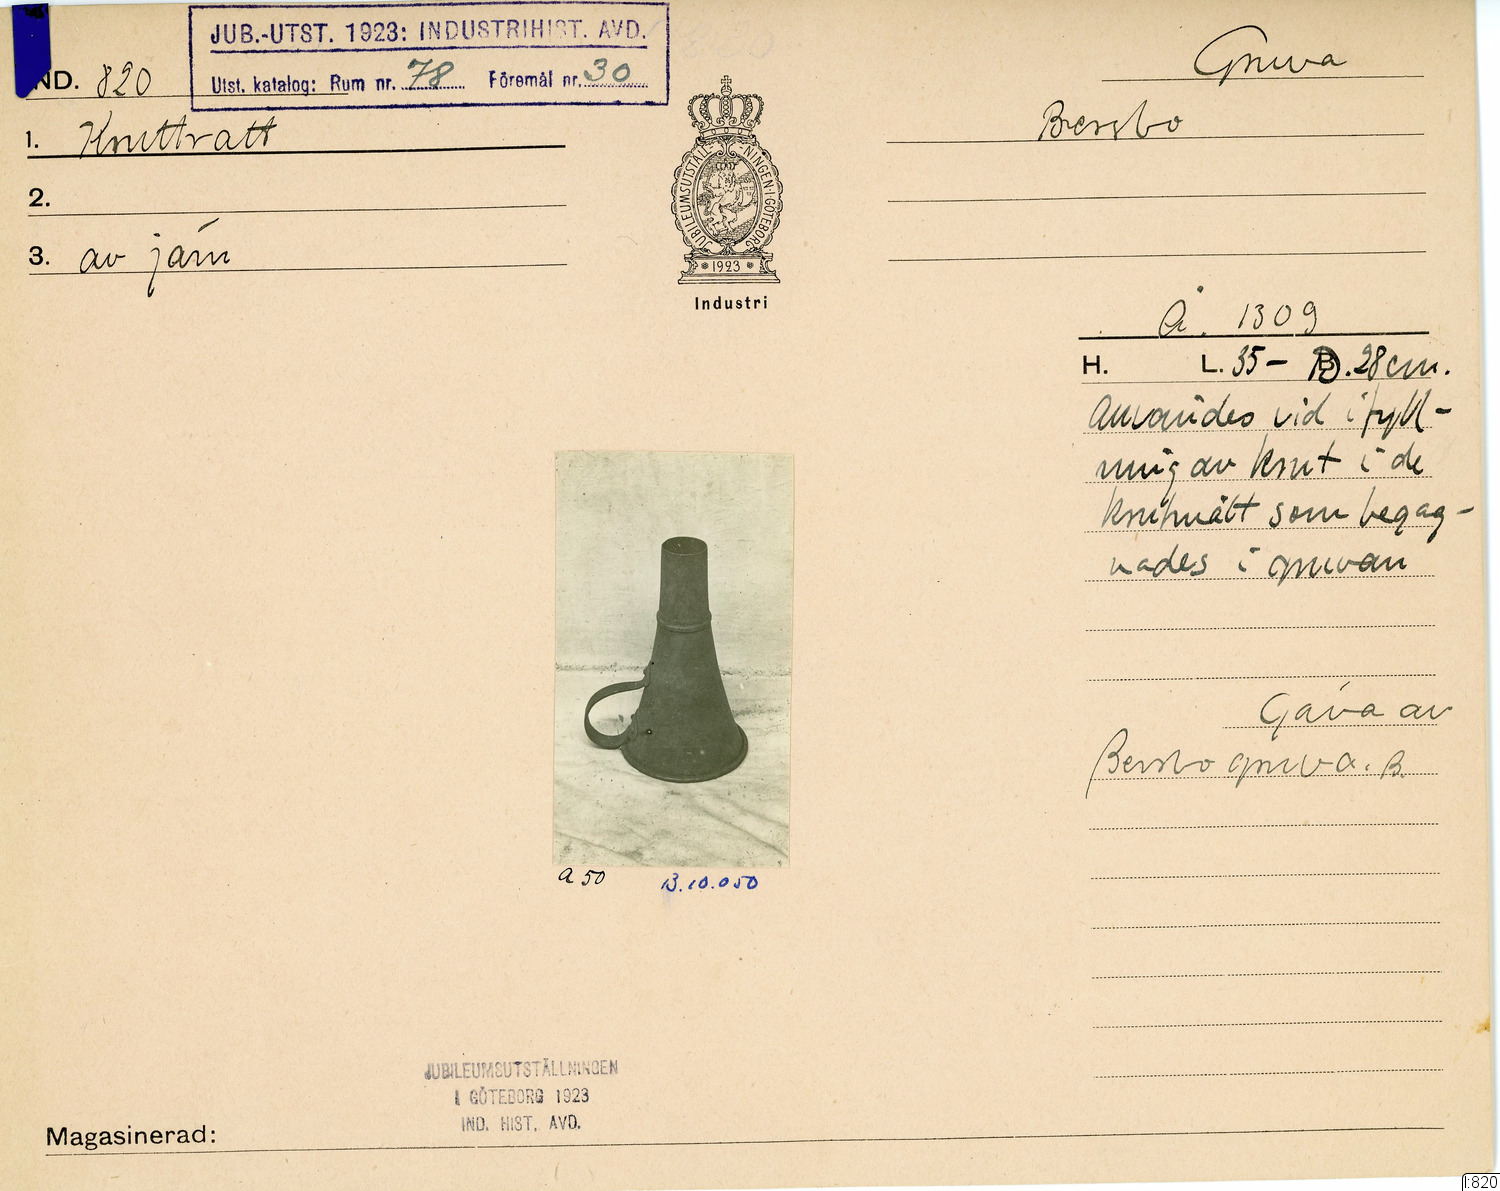 JUB.-UTST. 1923: INDUSTRIHIST. AVD.
Utst. katalog: Rum nr. 78 Föremål nr. 30
IND. 820
1. Kruttratt
2.
3. av järn
JUBILEUMSUTSTÄLL-NINGEN·I·GÖTEBORG
1923
Industri
Gruva
Bersbo
Å. 1309
H. L. 35- D. 28 cm.
Användes vid ifyll-
ning av krut i de
krutmått som begag-
nades i gruvan
Gåva av
Bersbo gruva. B.
a 50
B.10.050
JUBILEUMSUTSTÄLLNINGEN
I GÖTEBORG 1923
IND. HIST. AVD.
Magasinerad:
I:820